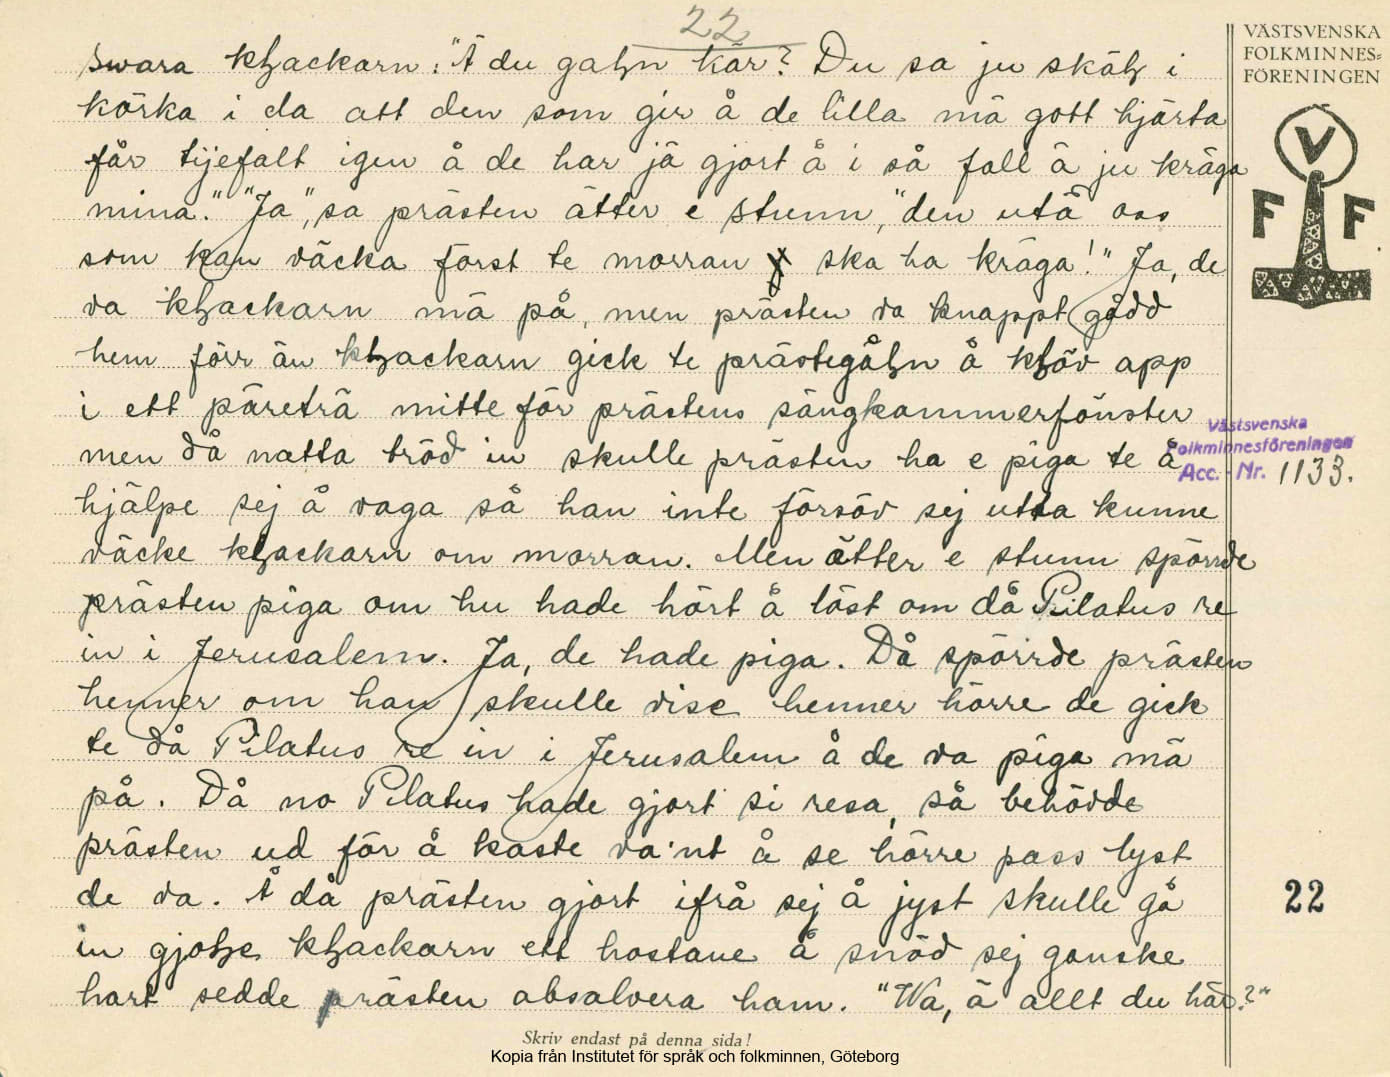 22
VÄSTSVENSKA
FOLKMINNES=
FÖRENINGEN
V
F F
swara kḷackarn: "Ä du gaḷn kär? Du sa ju skäḷ i
körka i da att den som gir å de lilla mä gott hjärta
får tijefalt igen å de har jä gjort å i så fall ä ju kräga
mina." "Ja", sa prästen ätter e stunn, "den utå oss
som kan väcka först te morran ska ha kräga!" Ja, de
va kḷackarn mä på, men prästen va knappt gådd
hem förr än kḷackarn gick te prästegåḷn å kḷöv app
i ett päreträ mitte för prästens sängkammerfönster
men då natta tröd in skulle prästen ha e piga te å
hjälpe sej å vaga så han inte försöv sej utta kunne
väcke kḷackarn om morran. Men ätter e stunn spörrde
prästen piga om hu hade hört å läst om då Pilatus re
in i Jerusalem. Ja, de hade piga. Då spörrde prästen
henner om han skulle vise henner hörre de gick
te då Pilatus re in i Jerusalem å de va piga mä
på. Då no Pilatus hade gjort si resa, så behövde
prästen ud för å kaste va'nt å se hörre pass lyst
de va. Å då prästen gjort ifrå sej å jyst skulle gå
in gjoḷe kḷackarn ett hostane å snöd sej ganske
hart sedde prästen absalvera ham. "Wa, ä allt du här?"
Västsvenska
Folkminnesföreningen
Acc. - Nr. 1133.
22
Skriv endast på denna sida!
Kopia från Institutet för språk och folkminnen, Göteborg